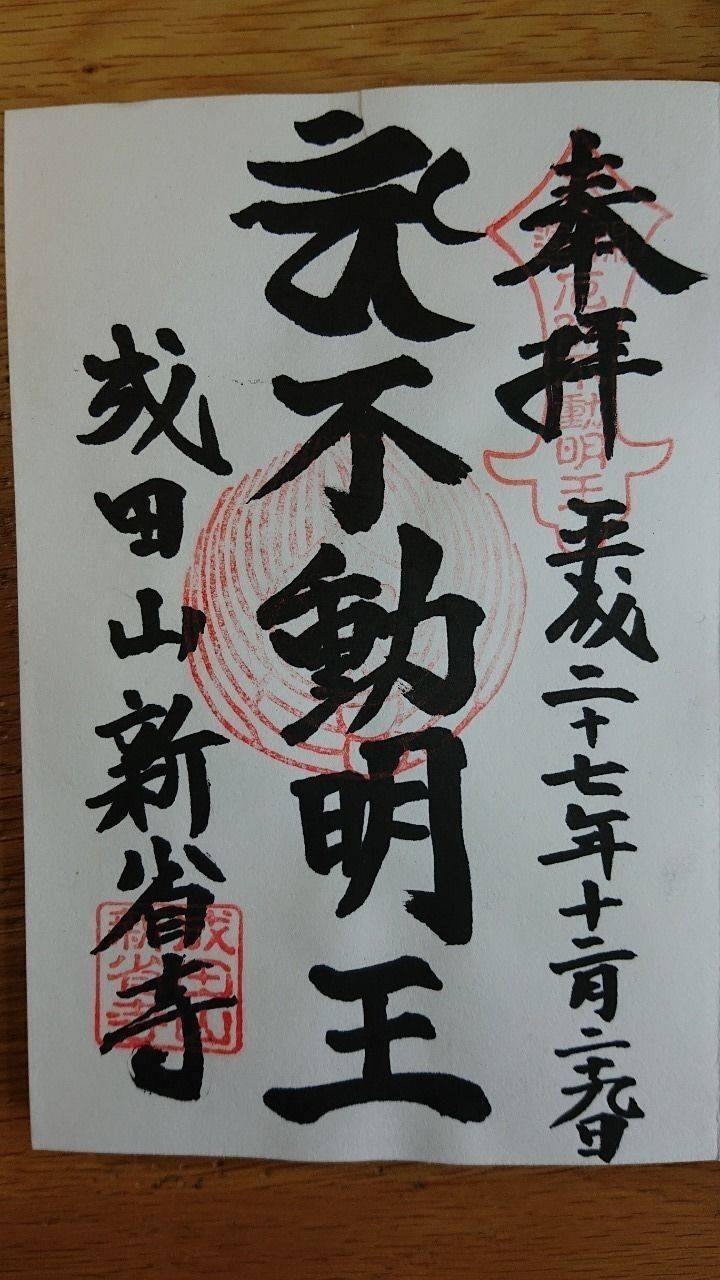 奉拝
平成二十七年十二月二十九日
厄除不動明王
不動明王
成田山新省寺
成田山
新省寺